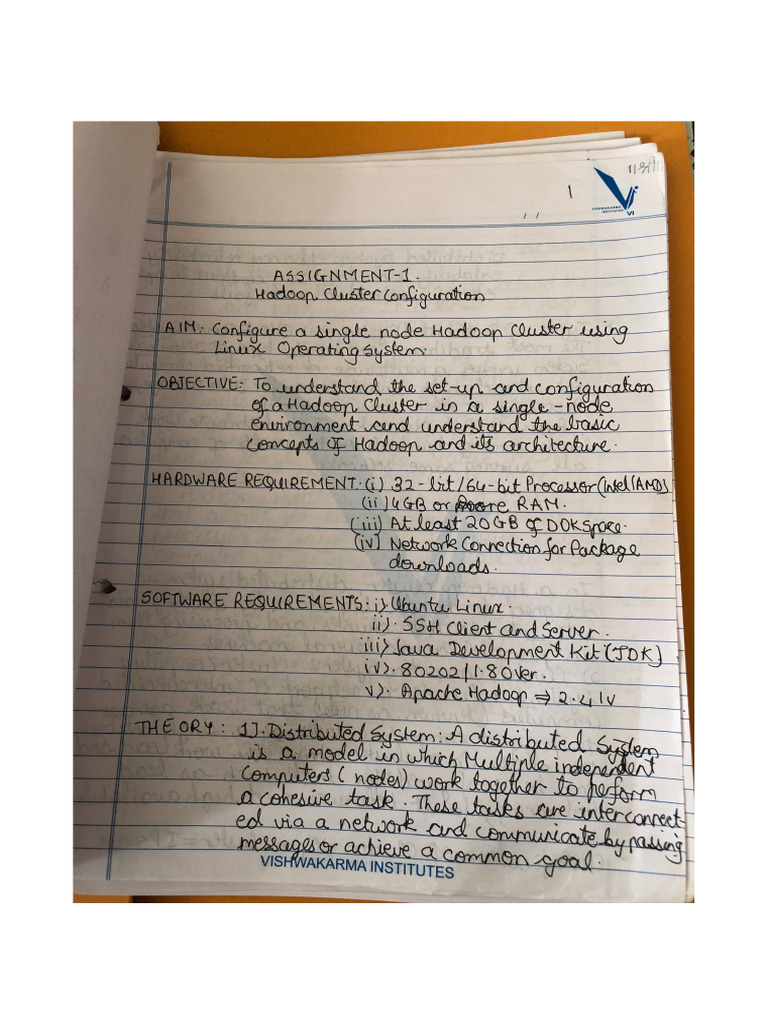 1
VISHWAKARMA
INSTITUTES
VI
/ /
ASSIGNMENT-1.
Hadoop Cluster Configuration
AIM: Configure a single node Hadoop Cluster using
Linux Operating System.
OBJECTIVE: To understand the set-up and configuration
of a Hadoop Cluster in a single-node
environment and understand the basic
concepts of Hadoop and its architecture.
HARDWARE REQUIREMENT: (i) 32-bit/64-bit Processor (Intel/AMD)
(ii) 4GB or more RAM.
(iii) At least 20GB of DOK Space.
(iv) Network Connection for Package
downloads.
SOFTWARE REQUIREMENTS: i) Ubuntu Linux.
ii). SSH Client and Server.
iii) Java Development Kit (JDK)
iv). 80202/1.80ver.
v). Apache Hadoop ⇒ 2.4 1v
THEORY: 1]. Distributed System: A distributed System
is a model in which Multiple independent
Computers (nodes) work together to perform
a cohesive task. These tasks are interconnect
ed via a network and communicate by passing
messages or achieve a common goal.
VISHWAKARMA INSTITUTES